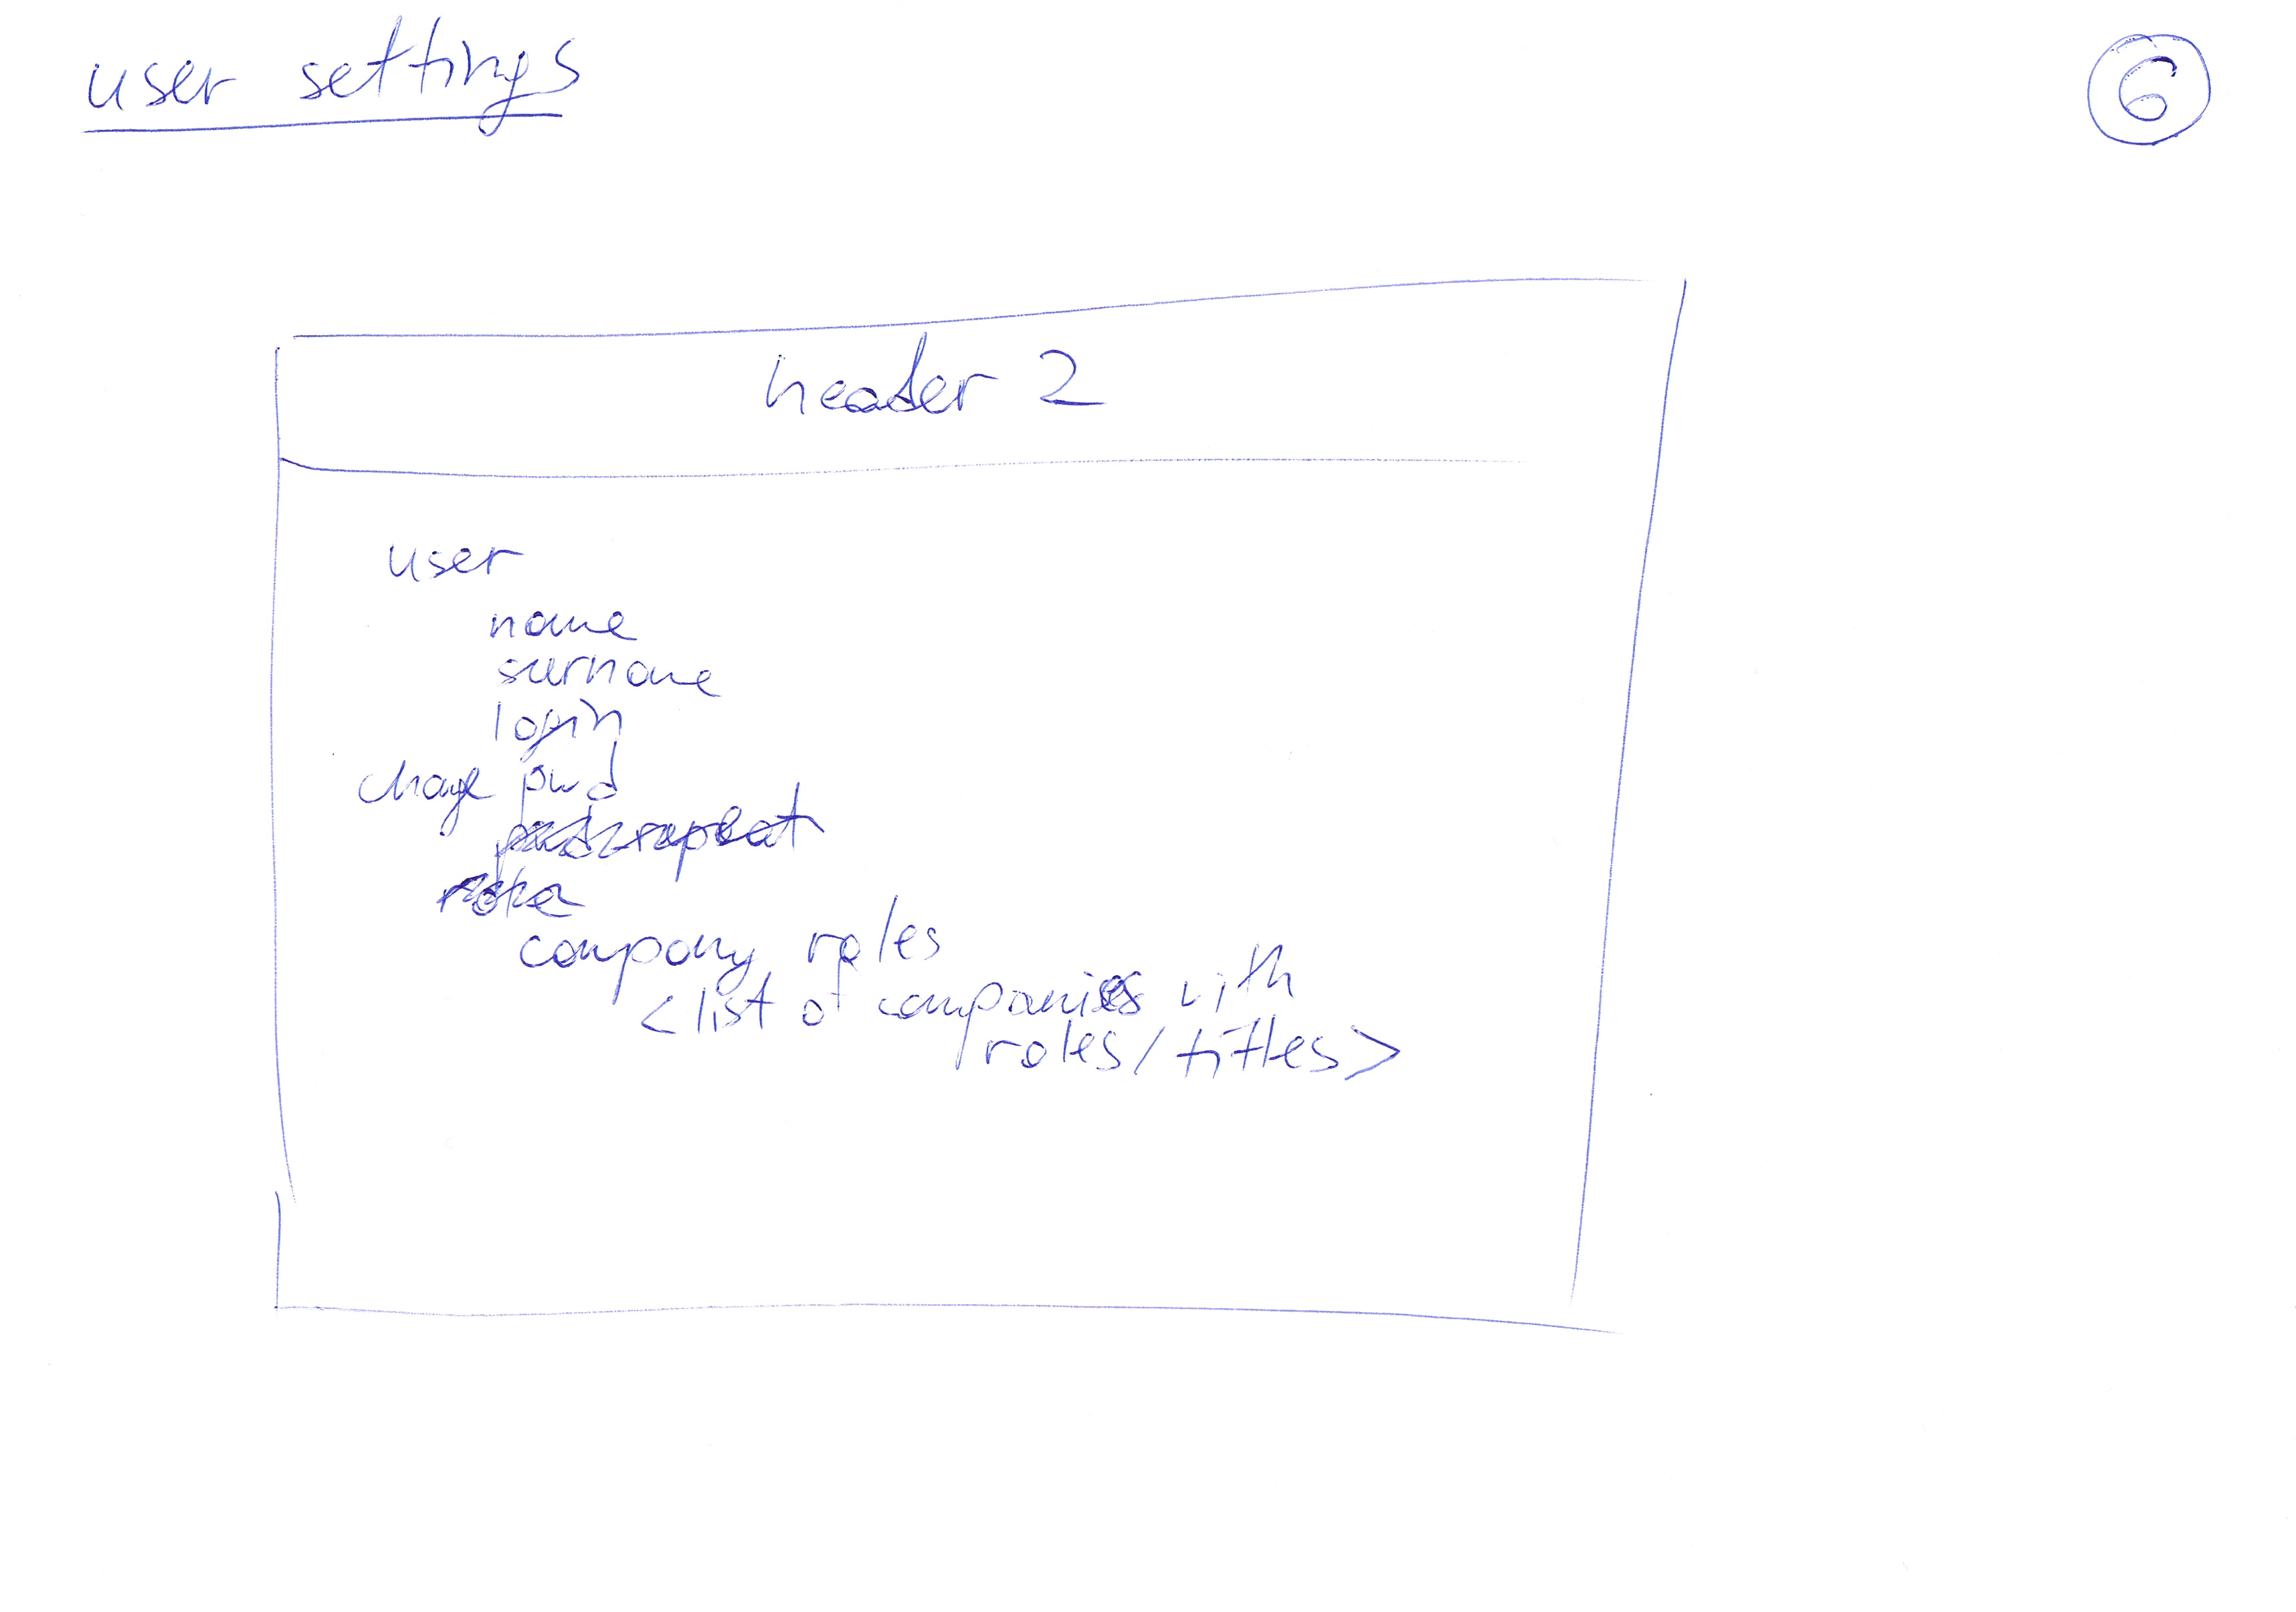 user settings
6
header 2
user
name
surname
login
change pwd
pwd repeat
company roles
<list of companies with
roles/titles>